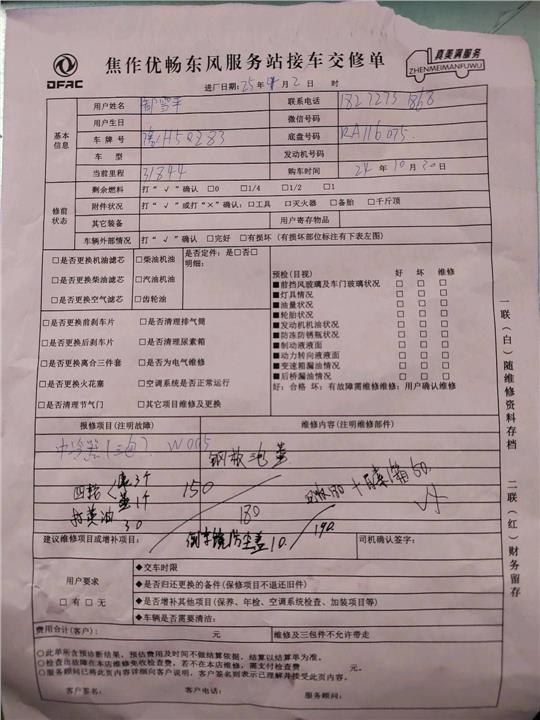 DFAC
焦作优畅东风服务站接车交修单
真美满服务
ZHENMEIMANFUWU
进厂日期:25年4月2日 时
基本信息
用户姓名 联系电话
用户生日 微信号码
车牌号 豫H5Q283 底盘号码 RA116075
车型 发动机号码
当前里程 31844 购车时间 24年10月30日
修前状态
剩余燃料 打“√”确认 □0 □1/4 □1/2 □1
附件状况 打“√”或打“×”确认:□工具 □灭火器 □备胎 □千斤顶
其它装备 用户寄存物品
车辆外部情况 打“√”确认 □完好 □有损坏(有损坏部位标注有下表左图)
□是否更换机油滤芯 □柴油机油 是否定件:是□否□
明细:
□是否更换柴油滤芯 □汽油机油
□是否更换空气滤芯 □齿轮油
□是否更换前刹车片 □是否清理排气筒
□是否更换后刹车片 □是否清理尿素箱
□是否更换离合三件套 □是否为电气维修
□是否更换火花塞 □空调系统是否正常运行
□是否清理节气门 □其它项目维修及更换
预检(目视) 好 坏 维修
■前挡风玻璃及车门玻璃状况 □ □ □
■灯具情况 □ □ □
■油量状况 □ □ □
■轮胎状况 □ □ □
■发动机机油状况 □ □ □
■防冻防锈瓶状况 □ □ □
■制动液液面 □ □ □
■动力转向液液面 □ □ □
■变速箱漏油情况 □ □ □
■后桥漏油情况 □ □ □
好:合格 坏:有故障需维修维修:用户确认维修
报修项目(注明故障) 维修内容(注明维修部件)
中冷器(三包) W005
四轮 150
打黄油 30 180
倒车镜防尘盖10 190
建议维修项目或增补项目: 司机确认签字:
用户要求
□有□无
◆交车时限
◆是否归还更换的备件(保修项目不退还旧件)
◆是否增补其他项目(保养、年检、空调系统检查、加装项目等)
◆车辆是否需要清洁:
费用合计(客户): 元 维修及三包件不允许带走
○此单所含预诊断结果,预估费用及时间不做结算依据,结算以结算单为准。
○检查出故障在本店维修免收检查费,若不在本店维修,需支付检查费 元
○服务顾问已将此页内容详细向客户说明,客户签名则表示已理解并接受此页内容。
客户签名: 客户电话: 服务顾问:
一联(白)随维修资料存档
二联(红)财务留存